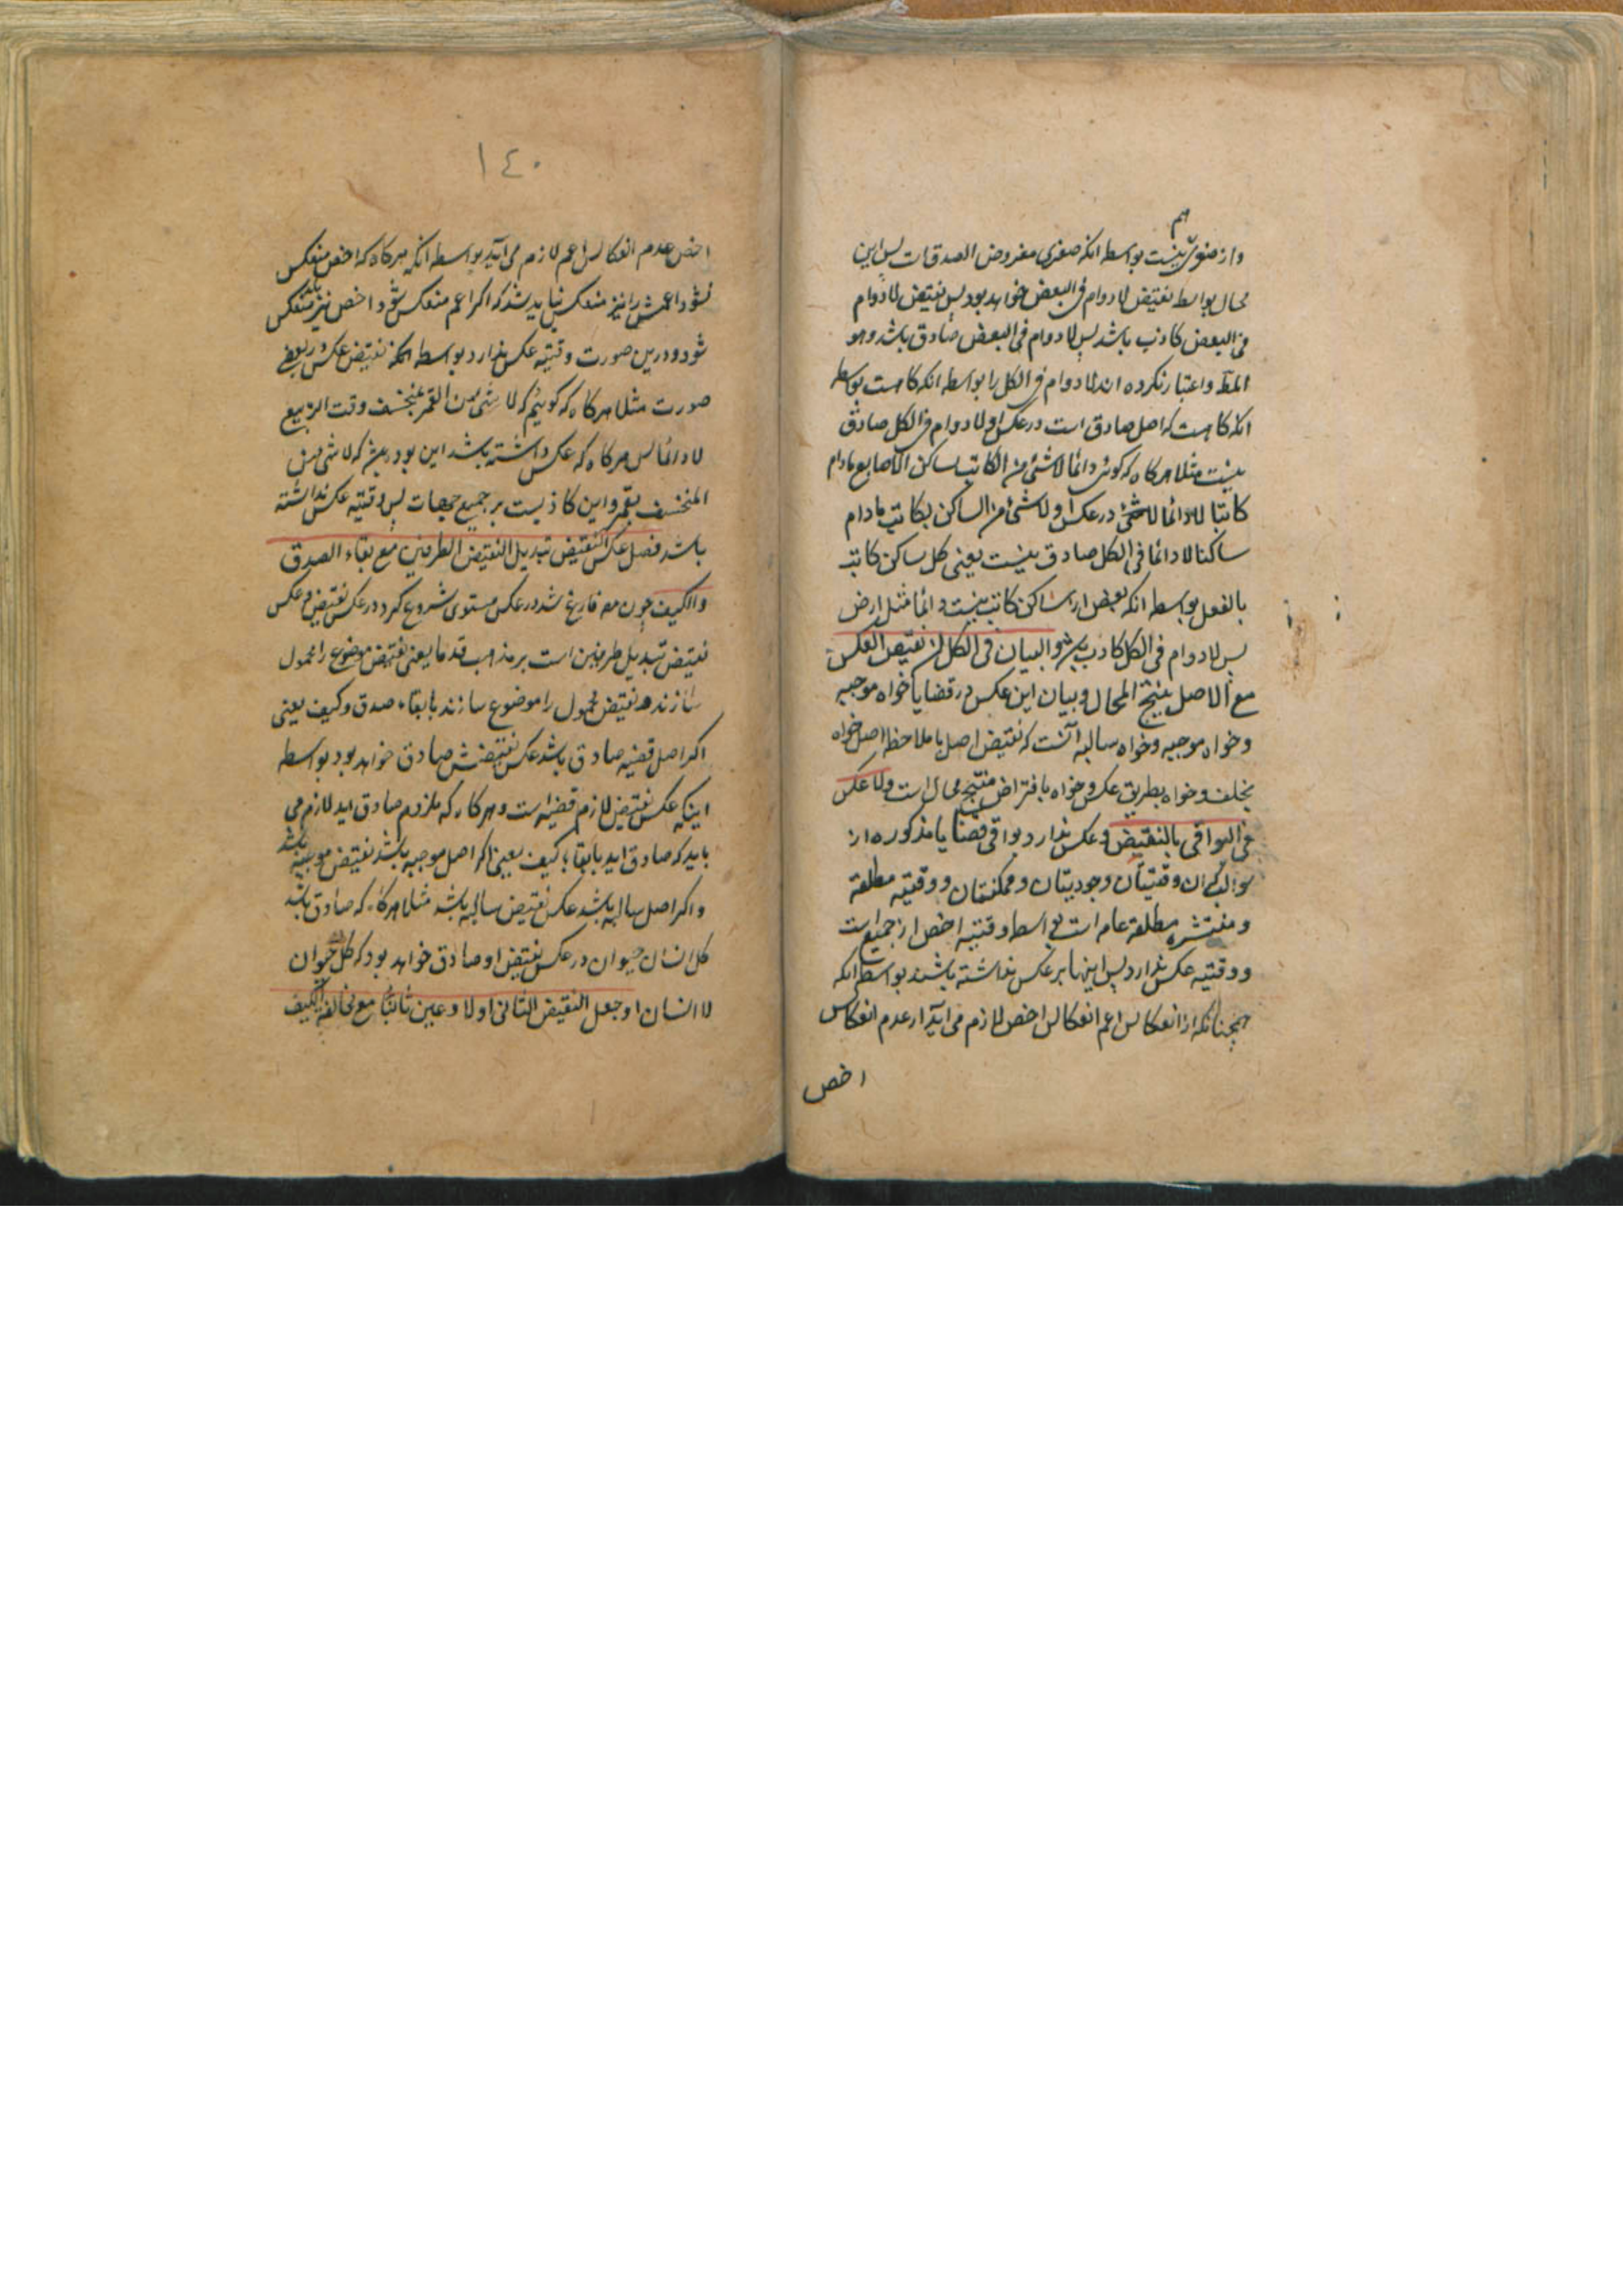 هم
و از صغری نیست بواسطه انکه صغری مفروض الصدقات پس این
محال بواسطه نقیض لا دوام فی البعض خواهد بود پس نقیض لا دوام
فی البعض کاذب باشد پس لا دوام فی البعض صادق باشد و هو
المط و اعتبار نکرده اند لا دوام فی الکل را بواسطه انکه کاهست بواسطه
انکه کاهست که اصل صادق است در عکس او لا دوام فی الکل صادق
نیست مثلا هرکاه که کوئی دائما لا شئ من الکاتب بساکن الاصابع مادام
کاتبا لا دائما در عکس او لا شئ من الساکن بکاتب مادام
ساکنا لا دائما فی الکل صادق نیست یعنی کل ساکن کاتب
بالفعل بواسطه انکه بعض از ساکن کاتب نیست دائما مثل ارض
پس لا دوام فی الکل کاذب باشد و البیان فی الکل ان نقیض العکس
مع الاصل ینتج المحال و بیان این عکس در قضایا خواه موجبه
و خواه موجبه و خواه سالبه آنست که نقیض اصل با ملاحظه اصل خواه
بخلف و خواه بطریق عکس و خواه بافتراض منتج محال است و لا عکس
فی البواقی بالنقیض و عکس ندارد بواقی قضایا مذکوره از
سوالب که ان وقتیتان و وجودیتان و ممکنتان و وقتیه مطلقة
و منتشره مطلقة عام است بواسطه وقتیه اخص از جمیع است
و وقتیه عکس ندارد پس اینها بر عکس نداشته باشند بواسطه انکه
همچنانکه از انعکاس اعم انعکاس اخص لازم می اید از عدم انعکاس
اخص
١٤٠
اخص عدم انعکاس اعم لازم می اید بواسطه انکه هرکاه که اخص منعکس
نشود اعمش را نیز منعکس نباید شد که اکر اعم منعکس شود اخص نیز باید منعکس
شود و درین صورت وقتیه عکس ندارد بواسطه انکه نقیض عکس در بعضی
صورت مثلا هرکاه که کوئیم که لا شئ من القمر بمنخسف وقت التربیع
لا دائما پس هرکاه که عکس داشته باشد این بود که لا شئ من
المنخسف بقمر و این کاذبست بر جمیع جهات پس وقتیه عکس نداشته
باشد فصل عکس النقیض تبدیل النقیض الطرفین مع بقاء الصدق
و الکیف چون مص فارغ شد در عکس مستوی شروع کرد در عکس نقیض و عکس
نقیض تبدیل طرفین است بر مذهب قدما یعنی نقیض موضوع را محمول
سازند و نقیض محمول را موضوع سازند با بقاء صدق و کیف یعنی
اکر اصل قضیه صادق باشد عکس نقیضش صادق خواهد بود بواسطه
اینکه عکس نقیض لازم قضیه است و هرکاه که ملزوم صادق اید لازم می
باید که صادق اید با بقاء کیف یعنی اکر اصل موجبه باشد نقیض موجبه باشد
و اکر اصل سالبه باشد عکس نقیض سالبه باشد مثلا هرکاه که صادق باشد
کل انسان حیوان در عکس نقیض او صادق خواهد بود که کل لا حیوان
لا انسان او جعل النقیض الثانی اولا و عین ثانیا مع مخالفة الکیف